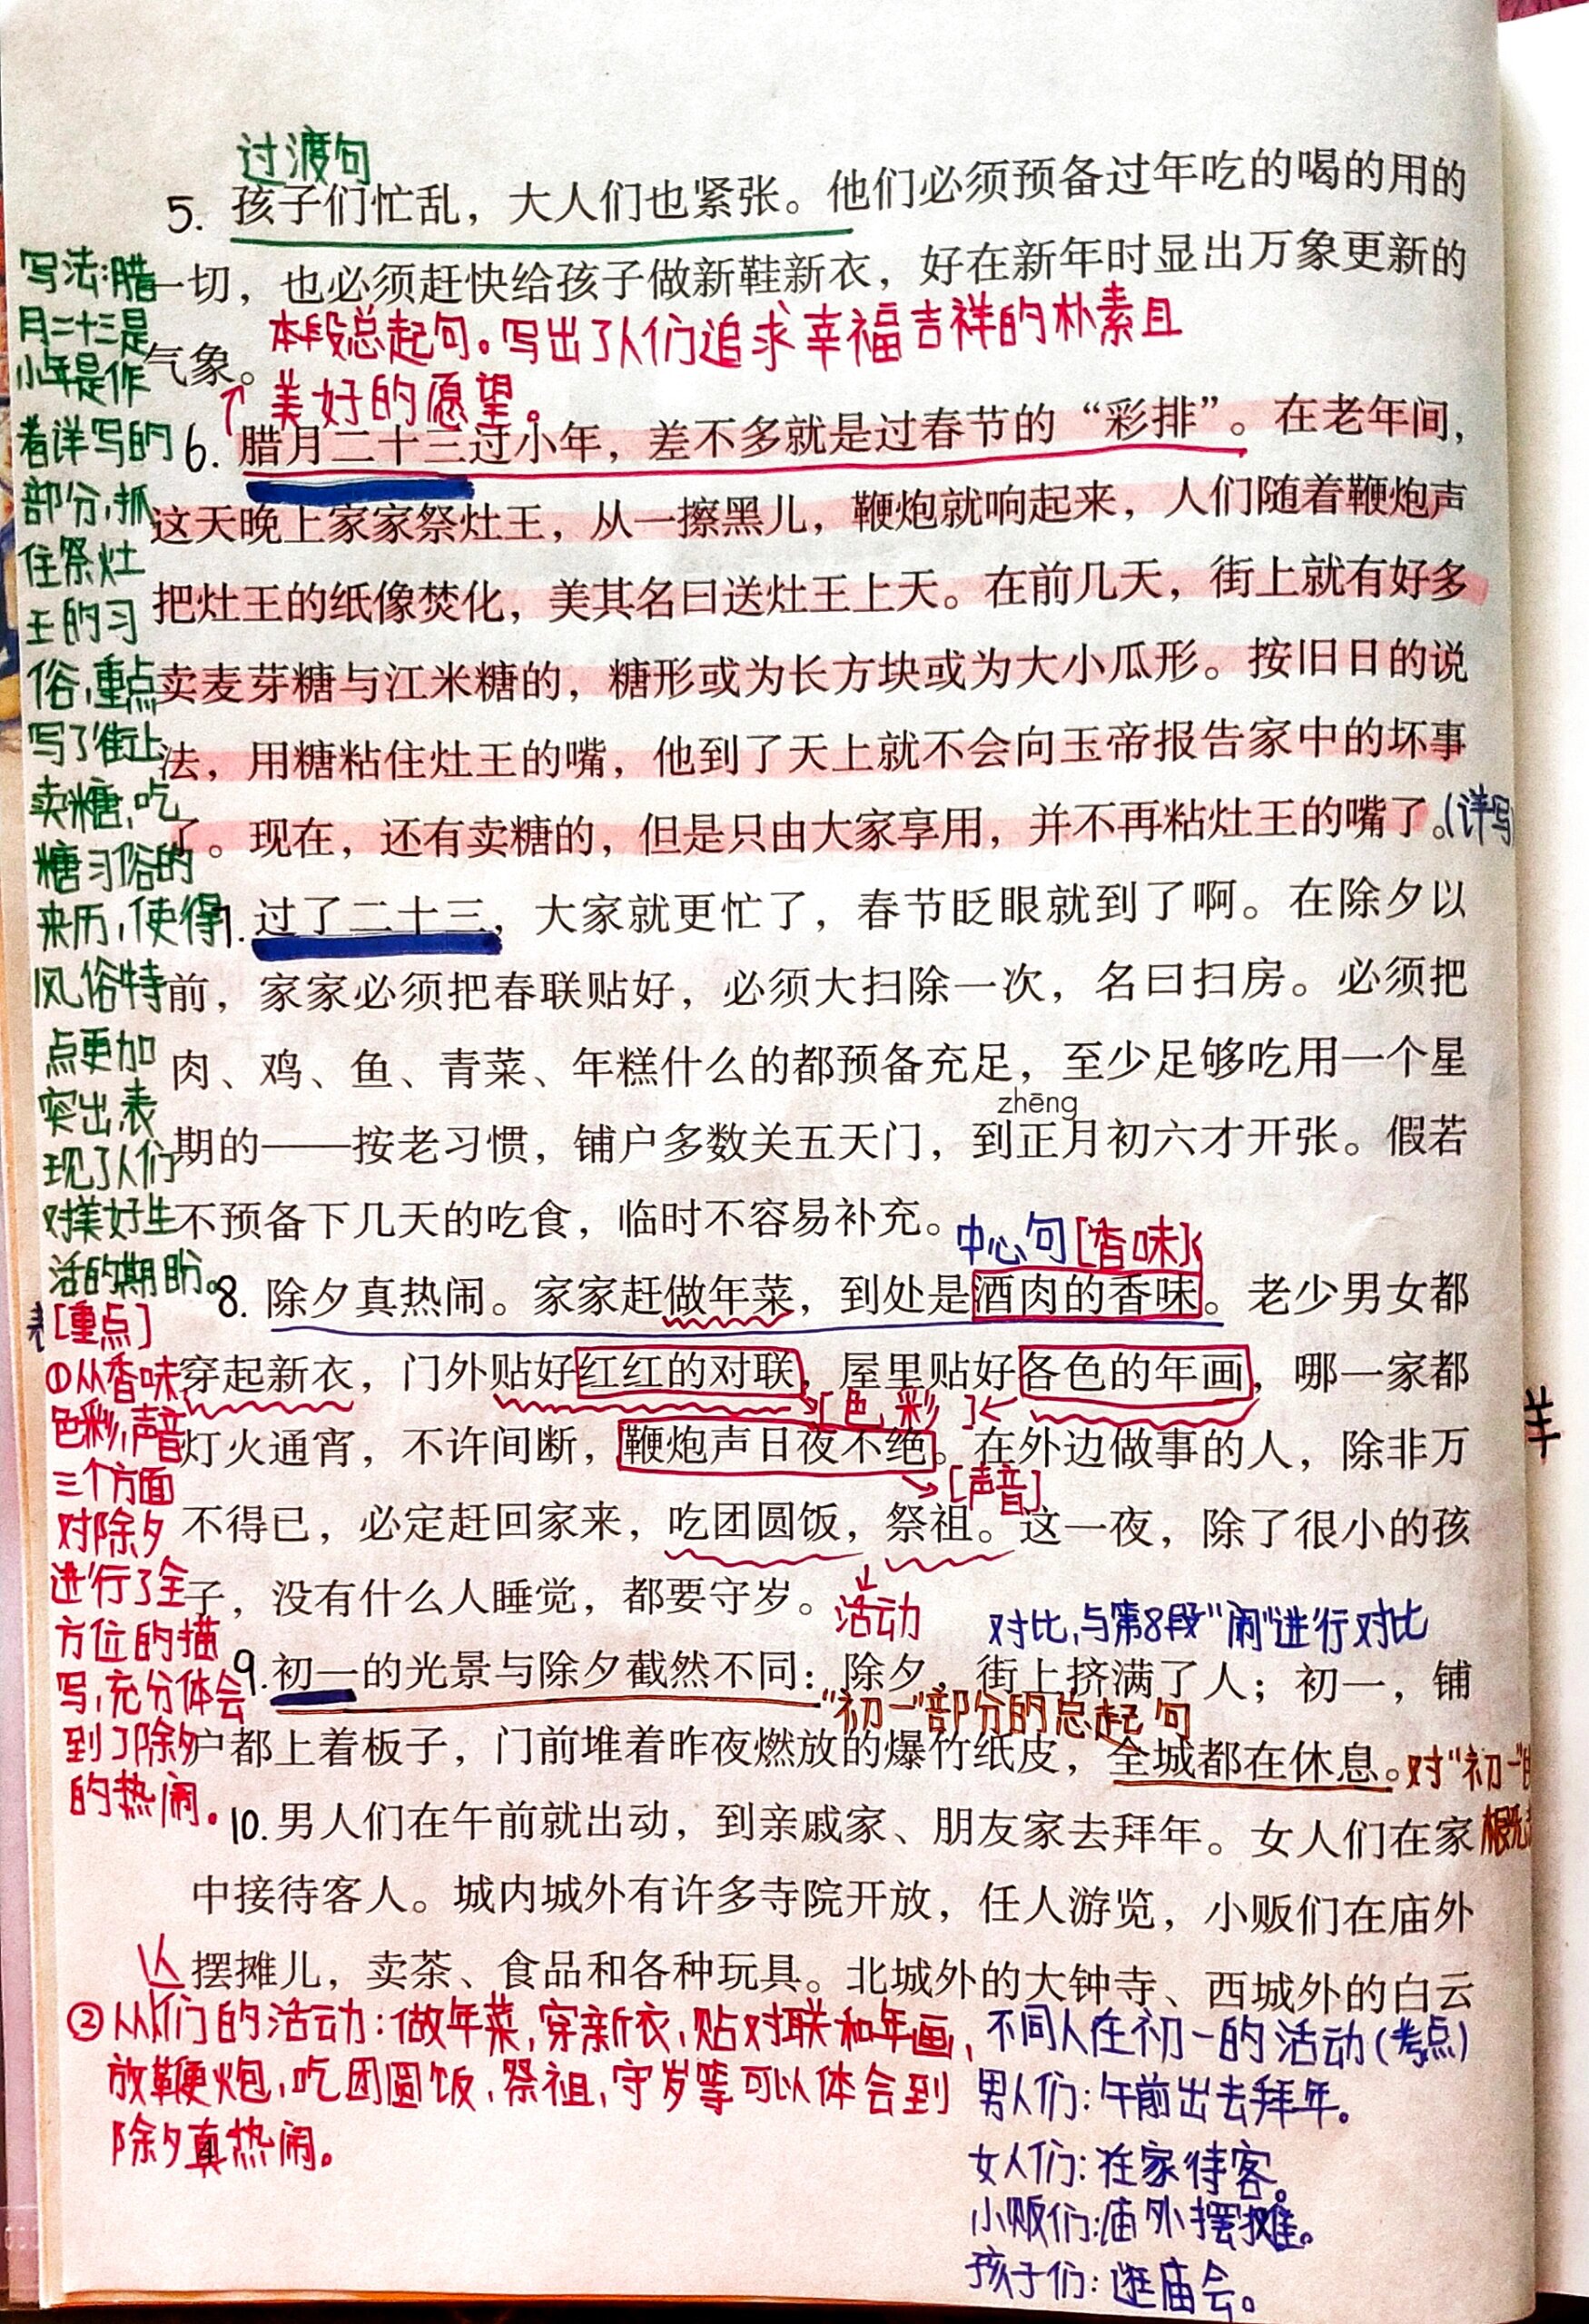 过渡句
5. 孩子们忙乱，大人们也紧张。他们必须预备过年吃的喝的用的
一切，也必须赶快给孩子做新鞋新衣，好在新年时显出万象更新的
气象。
本段总起句。写出了人们追求幸福吉祥的朴素且
美好的愿望。
6. 腊月二十三过小年，差不多就是过春节的“彩排”。在老年间，
这天晚上家家祭灶王，从一擦黑儿，鞭炮就响起来，人们随着鞭炮声
把灶王的纸像焚化，美其名曰送灶王上天。在前几天，街上就有好多
卖麦芽糖与江米糖的，糖形或为长方块或为大小瓜形。按旧日的说
法，用糖粘住灶王的嘴，他到了天上就不会向玉帝报告家中的坏事
了。现在，还有卖糖的，但是只由大家享用，并不再粘灶王的嘴了。(详写)
7. 过了二十三，大家就更忙了，春节眨眼就到了啊。在除夕以
前，家家必须把春联贴好，必须大扫除一次，名曰扫房。必须把
肉、鸡、鱼、青菜、年糕什么的都预备充足，至少足够吃用一个星
zhēng
期的——按老习惯，铺户多数关五天门，到正月初六才开张。假若
不预备下几天的吃食，临时不容易补充。
中心句[香味]
8. 除夕真热闹。家家赶做年菜，到处是酒肉的香味。老少男女都
穿起新衣，门外贴好红红的对联，屋里贴好各色的年画，哪一家都
[色彩]
灯火通宵，不许间断，鞭炮声日夜不绝。在外边做事的人，除非万
[声音]
不得已，必定赶回家来，吃团圆饭，祭祖。这一夜，除了很小的孩
子，没有什么人睡觉，都要守岁。
活动
对比，与第8段“闹”进行对比
9. 初一的光景与除夕截然不同：除夕，街上挤满了人；初一，铺
“初一”部分的总起句
户都上着板子，门前堆着昨夜燃放的爆竹纸皮，全城都在休息。
对“初一”的
概括
10. 男人们在午前就出动，到亲戚家、朋友家去拜年。女人们在家
中接待客人。城内城外有许多寺院开放，任人游览，小贩们在庙外
摆摊儿，卖茶、食品和各种玩具。北城外的大钟寺、西城外的白云
写法：腊
月二十三是
小年是作
者详写的
部分，抓
住祭灶
王的习
俗，重点
写了街上
卖糖，吃
糖习俗的
来历，使得
风俗特
点更加
突出，表
现了人们
对美好生
活的期盼。
[重点]
①从香味
色彩，声音
三个方面
对除夕
进行了全
方位的描
写，充分体会
到了除夕
的热闹。
②从人们的活动：做年菜，穿新衣，贴对联和年画，
放鞭炮，吃团圆饭，祭祖，守岁等可以体会到
除夕真热闹。
4
不同人在初一的活动(考点)
男人们：午前出去拜年。
女人们：在家待客。
小贩们：庙外摆摊。
孩子们：逛庙会。